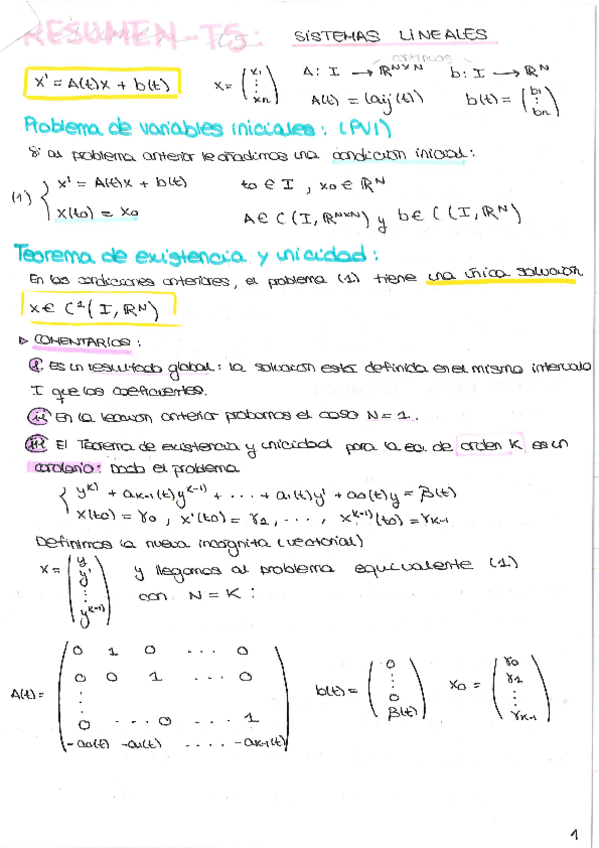 RESUMEN-T5: SISTEMAS LINEALES
continuas
x' = A(t)x + b(t) x = (x1 ⋮ xn) A: I → ℝ^N×N b: I → ℝ^N
A(t) = (aij(t)) b(t) = (b1 ⋮ bn)
Problema de variables iniciales: (PVI)
Si al problema anterior le añadimos una condición inicial:
(1) { x' = A(t)x + b(t) t0 ∈ I , x0 ∈ ℝ^N
x(t0) = x0 A ∈ C(I, ℝ^N×N) y b ∈ C(I, ℝ^N)
Teorema de existencia y unicidad:
En las condiciones anteriores, el problema (1) tiene una única solución
x ∈ C^1(I, ℝ^N)
▷ COMENTARIOS:
i. Es un resultado global: la solución está definida en el mismo intervalo
I que los coeficientes.
ii. En la lección anterior probamos el caso N=1.
iii. El Teorema de existencia y unicidad para la ec. de orden K es un
corolario: Dado el problema
{ y^k) + ak-1(t)y^(k-1) + ... + a1(t)y' + a0(t)y = β(t)
x(t0) = γ0 , x'(t0) = γ1 , ... , x^(k-1)(t0) = γk-1
Definimos la nueva incógnita (vectorial)
x = (y y' ⋮ y^(k-1)) y llegamos al problema equivalente (1)
con N = K:
A(t) = ( 0 1 0 ... 0
0 0 1 ... 0
⋮
0 ... 0 ... 1
-a0(t) -a1(t) .... -ak-1(t) )
b(t) = (0 ⋮ 0 β(t)) x0 = (γ0 γ1 ⋮ γk-1)
1